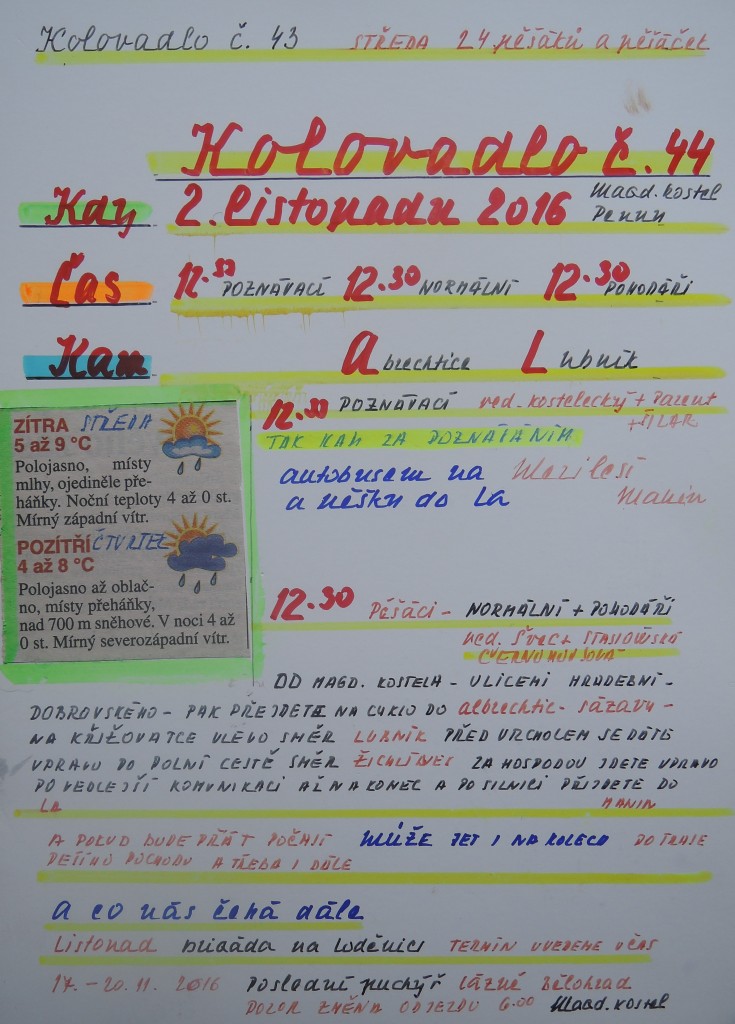 Kolovadlo č. 43 STŘEDA 24 pěšáků a pěšaček
Kolovadlo č. 44
Kdy 2. listopadu 2016 Magd. kostel
Penny
Čas 12.30 POZNÁVACÍ 12.30 NORMÁLNÍ 12.30 POHODÁŘI
Kam Albrechtice Lubník
12.30 POZNÁVACÍ ved. kostelecký +
+ ŠILAR
TAK KAM ZA POZNÁVÁNÍM
autobusem na Mezilesí
a pěšky do LA Manin
ZÍTRA STŘEDA
5 až 9 °C
Polojasno, místy
mlhy, ojediněle pře-
háňky. Noční teploty 4 až 0 st.
Mírný západní vítr.
POZÍTŘÍ ČTVRTEK
4 až 8 °C
Polojasno až oblač-
no, místy přeháňky,
nad 700 m sněhové. V noci 4 až
0 st. Mírný severozápadní vítr.
12.30 Pěšáci - NORMÁLNÍ + POHODÁŘI
ved. Švec +
ČERNOHOUSOVÁ
OD MAGD. KOSTELA - ULICEMI HRADEBNÍ -
DOBROVSKÉHO - PAK PŘEJDETE NA CYKLO DO albrechtic - sázavy -
NA KŘIŽOVATCE VLEVO SMĚR LUBNÍK PŘED VRCHOLEM SE DÁTE
VPRAVO PO POLNÍ CESTĚ SMĚR ŽICHLÍNEK ZA HOSPODOU JDETE VPRAVO
PO VEDLEJŠÍ KOMUNIKACI AŽ NA KONEC A PO SILNICI PŘIJDETE DO
LA MANIN
A POKUD BUDE PŘÁT POČASÍ MŮŽE JET I NA KOLECH DO TRASE
PĚŠÍHO POCHODU A TŘEBA I DÁLE
A co nás čeká dále
Listopad brigáda na loděnici TERMÍN UVEDEME VČAS
17. - 20. 11. 2016 Poslední puchýř Lázně Bělohrad
POZOR ZMĚNA ODJEZDU 6.00 Magd. kostel